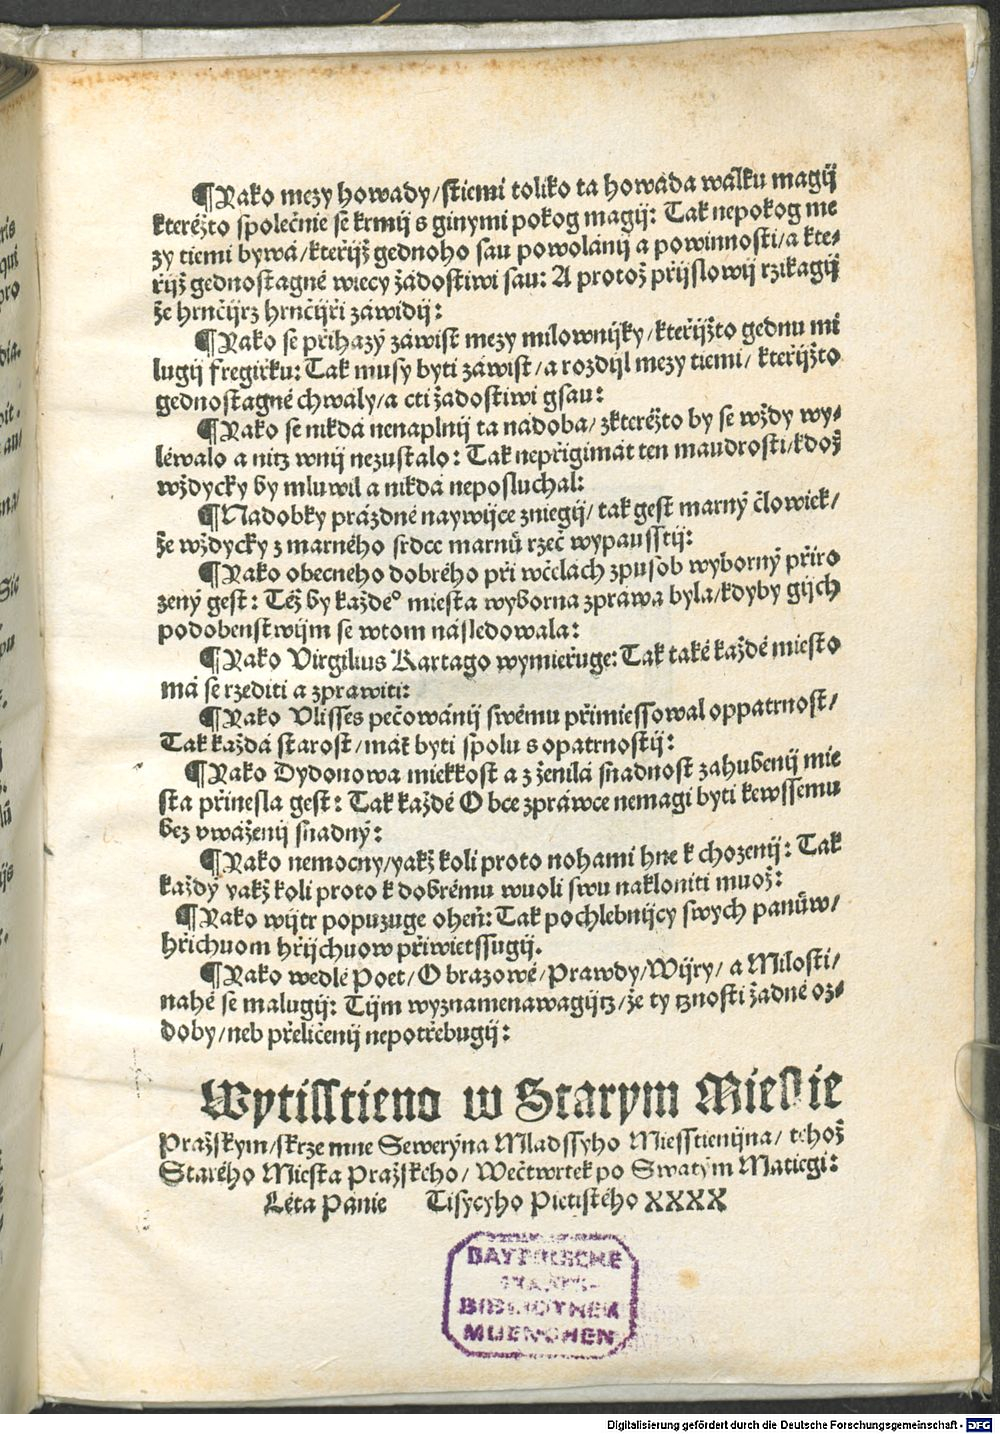 ¶Yako mezy howady/stiemi toliko ta howada walku magij
kteréžto společnie se krmij s ginymi pokog magij: Tak nepokog me
zy tiemi bywá/kteřijž gednoho sau powolánij a powinnosti/a kte⸗
řijž gednostagné wiecy žádostiwi sau: A protož přijslowij rzikagij
že hrnčijrz hrnčijři záwidij:
¶Yako se přihazý záwist mezy milownijky/kteřijžto gednu mi
lugij fregiřku: Tak musy byti záwist/a rozdijl mezy tiemi/ kteřijžto
gednostagné chwály/a cti žadostiwi gsau:
¶Yako se nikdá nenaplnij ta nádoba/zkteréžto by se wždy wy⸗
léwalo a nitz wnij nezustalo: Tak nepřigimát ten maudrosti/kdož
wždycky by mluwil a nikdá neposluchal:
¶Nádobky prázdné naywijce zniegij/ tak gest marný člowiek/
že wždycky z marného srdce marnů rzeč wypausstij:
¶Yako obecneho dobrého při wčelách zpusob wyborný příro
zený gest: Též by každe° miesta wyborna zpráwa byla/kdyby gijch
podobenstwijm se wtom následowala:
¶Yako Virgilius Kartago wymieřuge: Tak také každé miesto
má se rzediti a zprawiti:
¶Yako Vlisses pečowánij swému přimiessowal oppatrnost/
Tak každá starost/mát byti spolu s opatrnostij:
¶Yako Dydonowa miekkost a z ženilá snadnost zahubenij mie
sta přinesla gest: Tak každé O bce zpráwce nemagi byti kewssemu
bez vwáženij snadný:
¶Yako nemocny/yakž koli proto nohami hne k chozenij: Tak
každý yakž koli proto k dobrému wuoli swu nakloniti muož:
¶Yako wijtr popuzuge oheň: Tak pochlebnijcy swych panůw/
hřichuom hřijchuow přiwietssugij.
¶Yako wedlé Poet/O brazowé/Prawdy/Wijry/ a Milosti/
nahé se malugij: Tijm wyznamenawagijtz/že ty tznosti žadné oz⸗
doby/neb přeličenij nepotřebugij:
Wytisstieno w Starym Miestie
Pražskym/skrze mne Seweryna Mladssyho Miesstienijna/ tehož
Starého Miesta Pražskeho/ Wečtwrtek po Swatým Matiegi:
Léta Pánie Tisycyho Pietistého XXXX
BAYERISCHE
STAATS-
BIBLIOTHEK
MUENCHEN
Digitalisierung gefördert durch die Deutsche Forschungsgemeinschaft - DFG